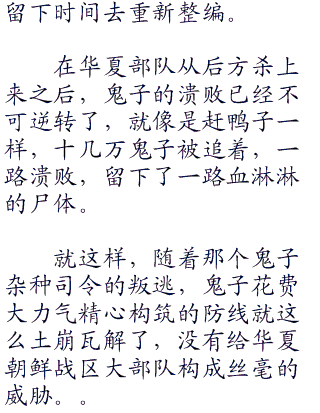 留下时间去重新整编。
在华夏部队从后方杀上
来之后，鬼子的溃败已经不
可逆转了，就像是赶鸭子一
样，十几万鬼子被追着，一
路溃败，留下了一路血淋淋
的尸体。
就这样，随着那个鬼子
杂种司令的叛逃，鬼子花费
大力气精心构筑的防线就这
么土崩瓦解了，没有给华夏
朝鲜战区大部队构成丝毫的
威胁。。